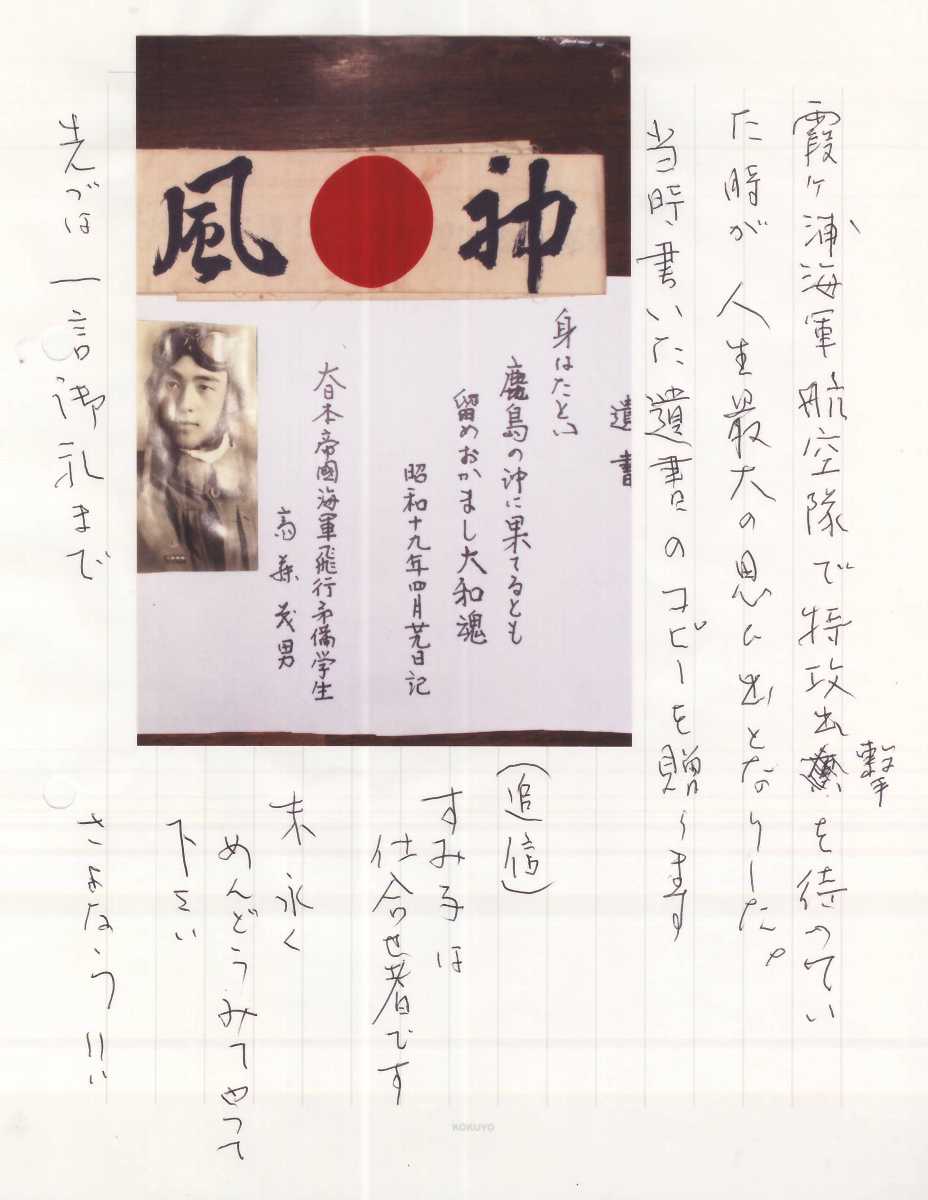 霞ヶ浦海軍航空隊で特攻出撃を待つてい
た時が人生最大の思い出となりした。
当時書いた遺書のコピーを贈ります
神風
遺書
身はたとい
鹿島の沖に果てるとも
留めおかまし大和魂
昭和十九年四月日記
大日本帝國海軍飛行予備学生
高 茂男
(追信)
すみ子は
仕合せ者です
末永く
めんどうみてやって
下さい
先づは一言御礼まで
さよなら!!
KOKUYO